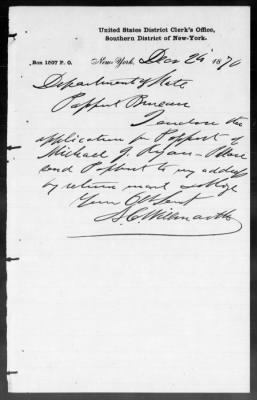 United States District Clerk's Office,
Southern District of New-York.
Box 1507 P. O. New York, Dec 24 1870
Department of State
Passport Bureau
I enclose the
application for Passport of
Michael J. Ryan - Please
send Passport to my address
by return mail &
Your Obt Servt